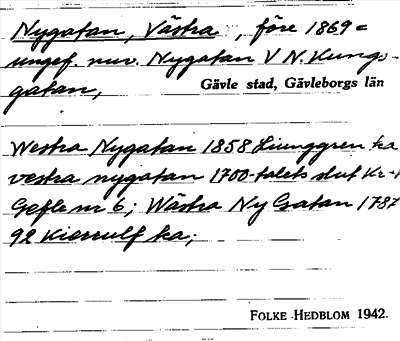 Nygatan, Västra, före 1869 =
ungef. nuv. Nygatan V N. Kungs-
gatan,
Gävle stad, Gävleborgs län
Westra Nygatan 1858 Ljunggren ka
vestra nygatan 1700-talets slut Kr-
Gefle nr 6; Wästra Ny Gatan 1787
92 Kierrulf ka;
FOLKE HEDBLOM 1942.